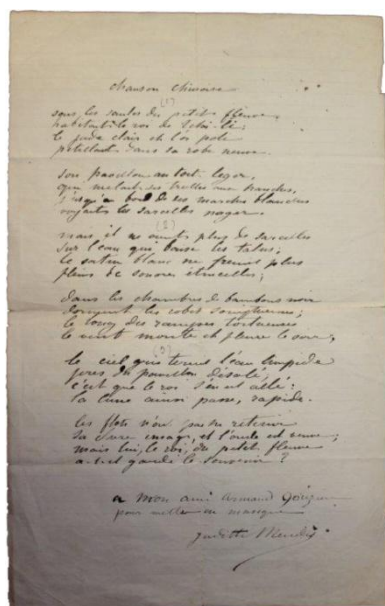 chanson chinoise
(1)
sous les saules du petit fleuve
habitait le roi de
le jade clair et l'or pâle
pétillent dans sa robe neuve.
son pavillon au toit léger
qui mêlait ses treilles aux branches,
jusqu'au bord de ses marches blanches
voyait les sarcelles nager
(2)
mais il ne vient plus de sarcelles
sur l'eau qui baise les talus;
le satin blanc ne frémit plus
plein de sonores étincelles;
dans les chambres de bambous noir
dorment les robes somptueuses;
le long des rampes tortueuses
le vent monte et pleure le soir,
(3)
le ciel qui ternit l'eau limpide
près du pavillon désolé,
c'est que le roi s'en est allé:
la lune ainsi passe, rapide.
les flots n'ont pas su retenir
sa image, et l'onde est neuve;
mais lui, le roi, du petit fleuve
a-t-il gardé le souvenir?
a mon ami armand
pour mettre en musique
Judith Mendès